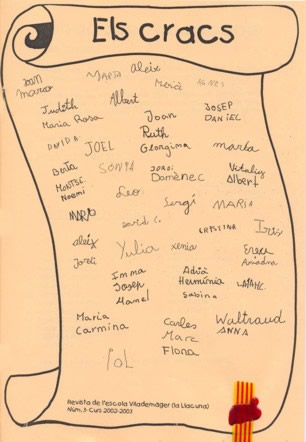 Els cracs
Joan Marta Aleix
marco Mercè AGNÈS
Judith Albert JOSEP
Maria Rosa Joan DANIEL
DAVID A. Ruth
JOEL Georgina marta
Berta SONIA JORDI Vitaliy
MONTSE Domènec Albert
Noemí Leo
MARIO Sergi MARIA
david C. CRISTINA Iris
aleix Yulia xenia
Jordi Ariadna
Imma Adrià
Josep Hermínia
Manel Sabina
Maria Carles Waltraud
Carmina Marc ANNA
POL Fiona
Revista de l'escola Vilademàger (la Llacuna)
Núm. 3- Curs 2002-2003